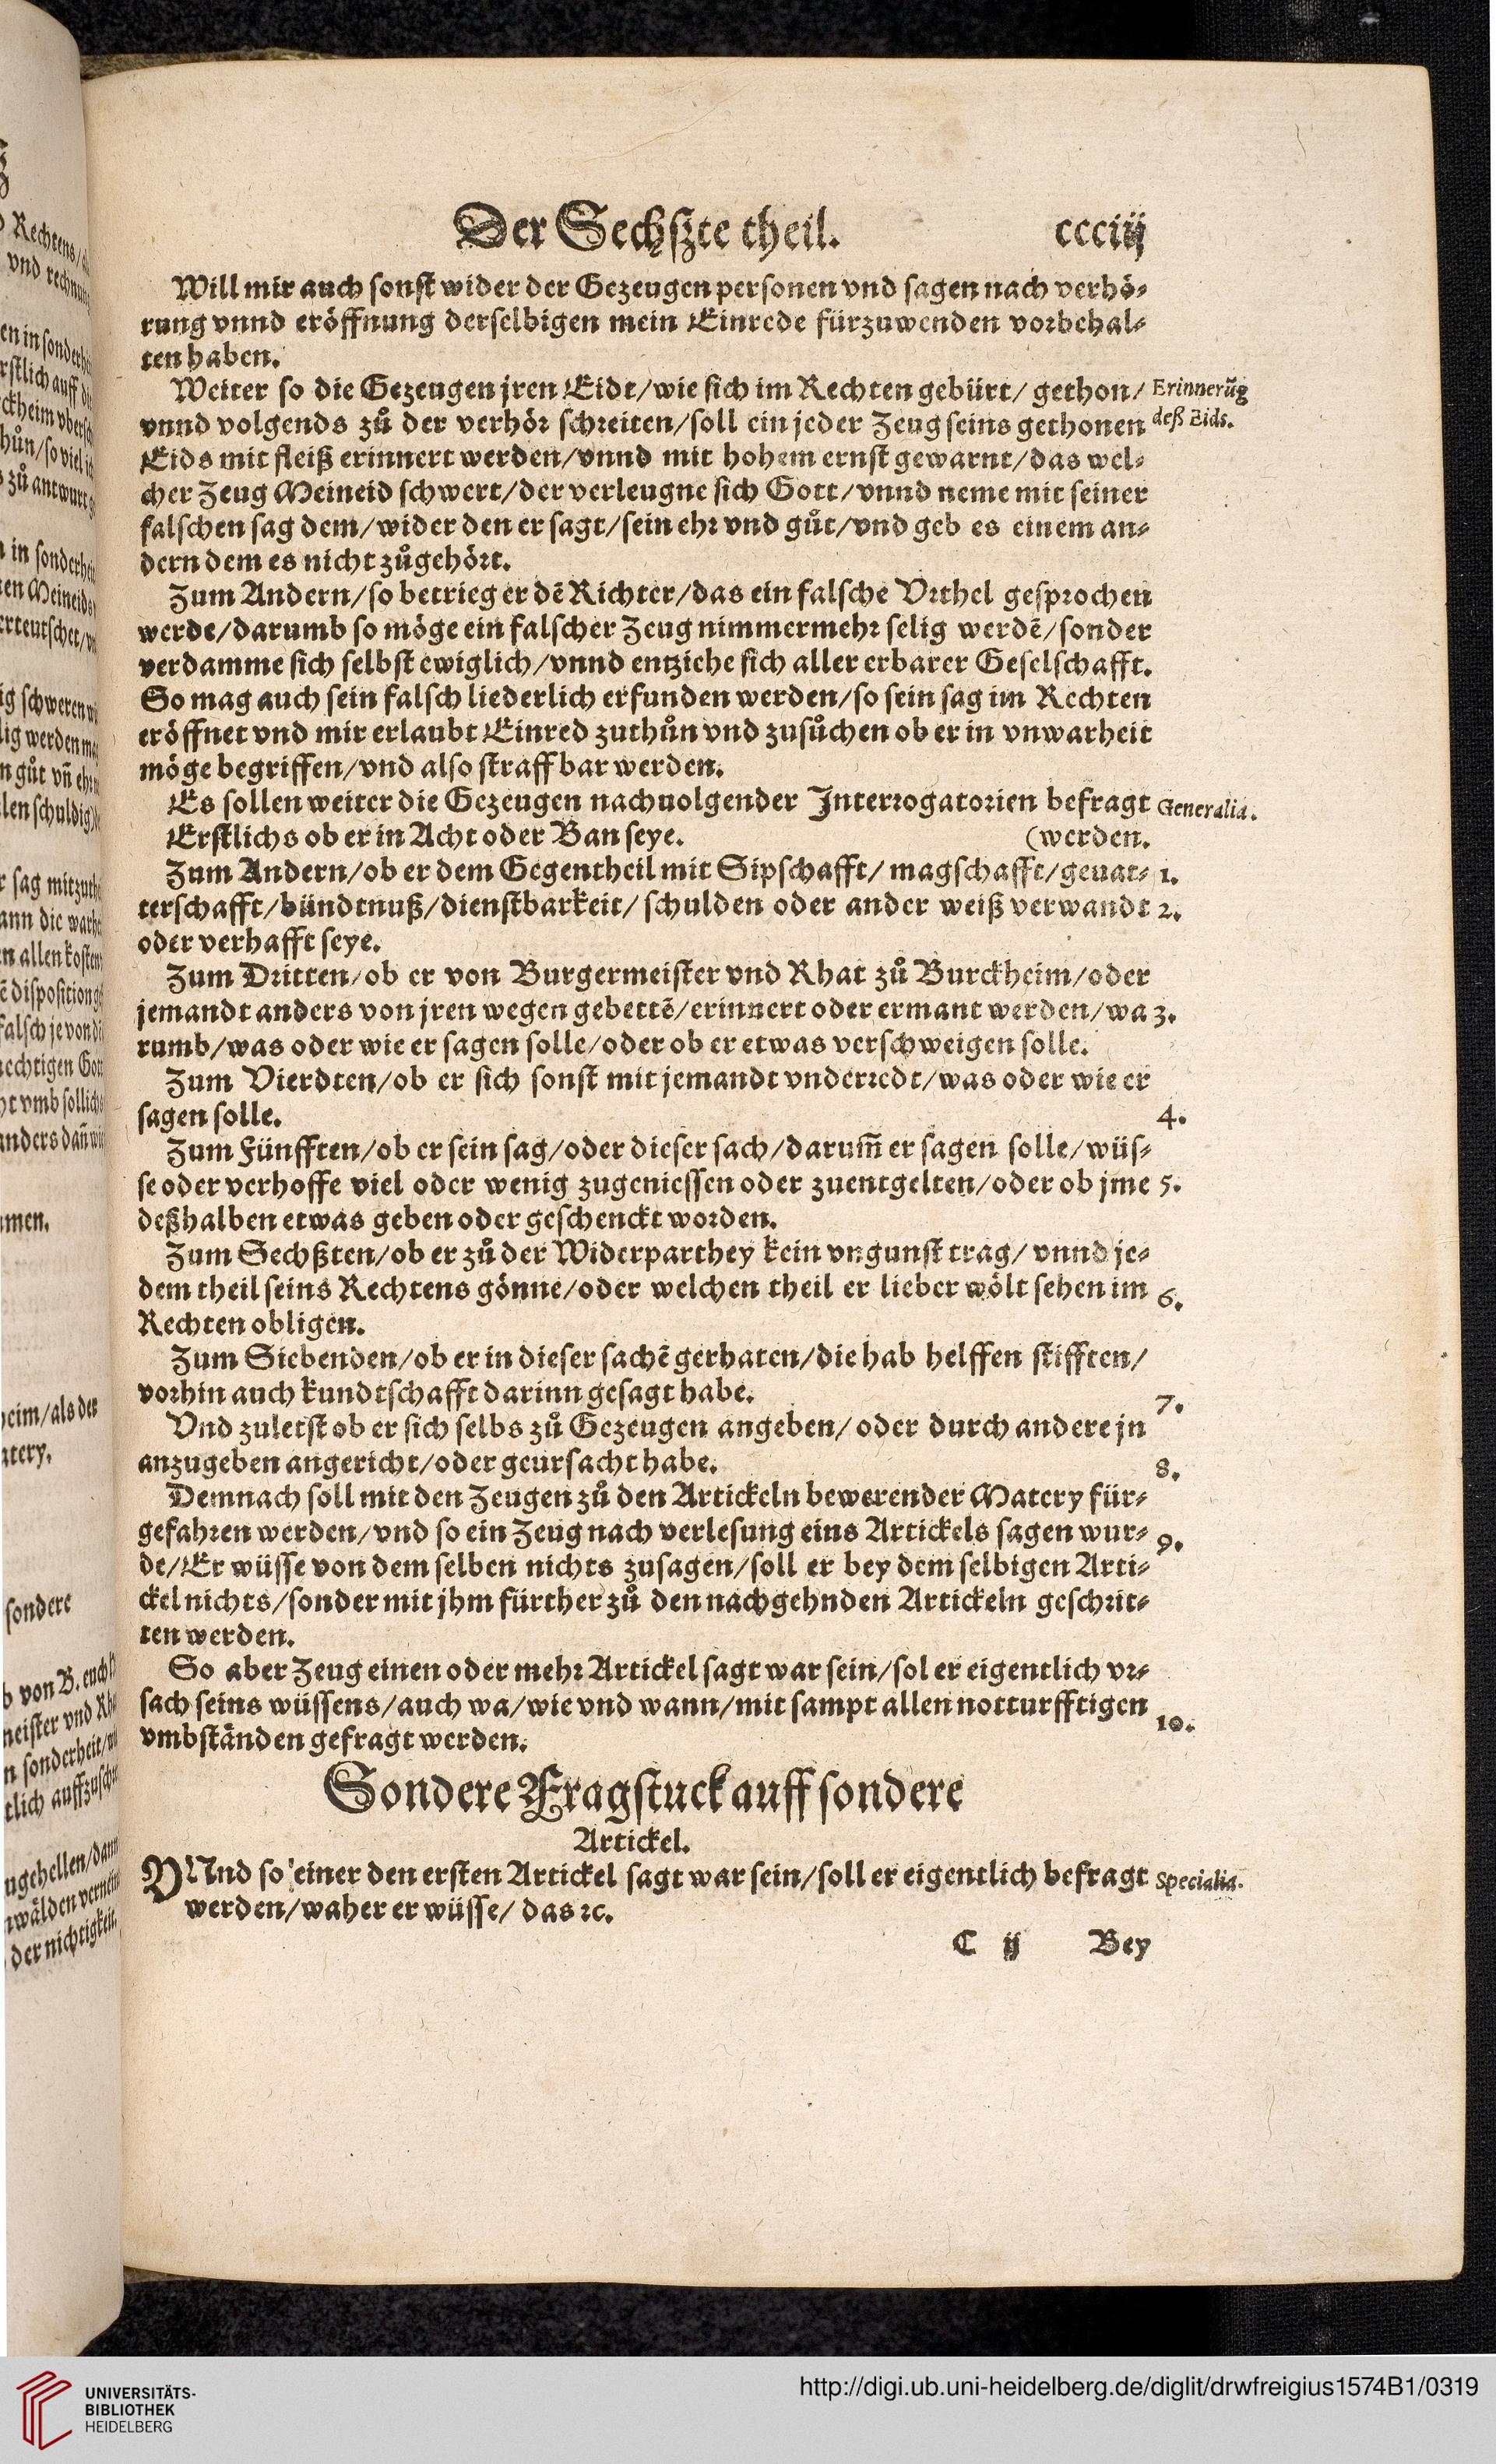 Der Sechſzte theil. ccciij
Will mir auch ſonſt wider der Gezeugen perſonen vnd ſagen nach verhö⸗
rung vnnd eröffnung derſelbigen mein Einrede fürzuwenden vorbehal⸗
ten haben.
Weiter ſo die Gezeugen jren Eidt/wie ſich im Rechten gebürt/ gethon/ Erinnerũg
vnnd volgends zů der verhör ſchreiten/ſoll ein jeder Zeug ſeins gethonen deß Eids.
Eids mit fleiß erinnert werden/vnnd mit hohem ernſt gewarnt/das wel⸗
cher Zeug Meineid ſchwert/der verleugne ſich Gott/vnnd neme mit ſeiner
falſchen ſag dem/wider den er ſagt/ſein ehr vnd gůt/vnd geb es einem an⸗
dern dem es nicht zůgehört.
Zum Andern/ſo betrieg er dē Richter/das ein falſche Vrthel geſprochen
werde/darumb ſo möge ein falſcher Zeug nimmermehr ſelig werdē/ſonder
verdamme ſich ſelbſt ewiglich/vnnd entziehe ſich aller erbarer Geſelſchafft.
So mag auch ſein falſch liederlich erfunden werden/ſo ſein ſag im Rechten
eröffnet vnd mir erlaubt Einred zuthůn vnd zuſůchen ob er in vnwarheit
möge begriffen/vnd alſo ſtraffbar werden.
Es ſollen weiter die Gezeugen nachuolgender Interrogatorien befragt Generalia.
Erſtlichs ob er in Acht oder Ban ſeye. (werden.
Zum Andern/ob er dem Gegentheil mit Sipſchafft/ magſchafft/geuat⸗ 1.
terſchafft/bündtnuß/dienſtbarkeit/ ſchulden oder ander weiß verwandt 2.
oder verhafft ſeye.
Zum Dritten/ob er von Burgermeiſter vnd Rhat zů Burckheim/oder
jemandt anders von jren wegen gebettē/erinnert oder ermant werden/wa 3.
rumb/was oder wie er ſagen ſolle/oder ob er etwas verſchweigen ſolle.
Zum Vierdten/ob er ſich ſonſt mit jemandt vnderredt/was oder wie er
ſagen ſolle. 4.
Zum Fünfften/ob er ſein ſag/oder dieſer ſach/darum̃ er ſagen ſolle/wüſ⸗
ſe oder verhoffe viel oder wenig zugenieſſen oder zuentgelten/oder ob jme 5.
deßhalben etwas geben oder geſchenckt worden.
Zum Sechßten/ob er zů der Widerparthey kein vngunſt trag/ vnnd je⸗
dem theil ſeins Rechtens gönne/oder welchen theil er lieber wölt ſehen im 6.
Rechten obligen.
Zum Siebenden/ob er in dieſer ſachē gerhaten/die hab helffen ſtifften/
vorhin auch kundtſchafft darinn geſagt habe. 7.
Vnd zuletſt ob er ſich ſelbs zů Gezeugen angeben/ oder durch andere jn
anzugeben angericht/oder geurſacht habe. 8.
Demnach ſoll mit den Zeugen zů den Artickeln bewerender Matery für⸗
gefahren werden/vnd ſo ein Zeug nach verleſung eins Artickels ſagen wur⸗ 9.
de/Er wüſſe von dem ſelben nichts zuſagen/ſoll er bey dem ſelbigen Arti⸗
ckel nichts/ſonder mit jhm fürther zů den nachgehnden Artickeln geſchrit⸗
ten werden.
So aber Zeug einen oder mehr Artickel ſagt war ſein/ſol er eigentlich vr⸗
ſach ſeins wüſſens/auch wa/wie vnd wann/mit ſampt allen notturfftigen 10.
vmbſtänden gefragt werden.
Sondere Fragſtuck auff ſondere
Artickel.
VNnd ſo einer den erſten Artickel ſagt war ſein/ſoll er eigentlich befragt Specialia.
werden/waher er wüſſe/ das ꝛc.
C ij Bey
UNIVERSITÄTS-
BIBLIOTHEK
HEIDELBERG
http://digi.ub.uni-heidelberg.de/diglit/drwfreigius1574B1/0319